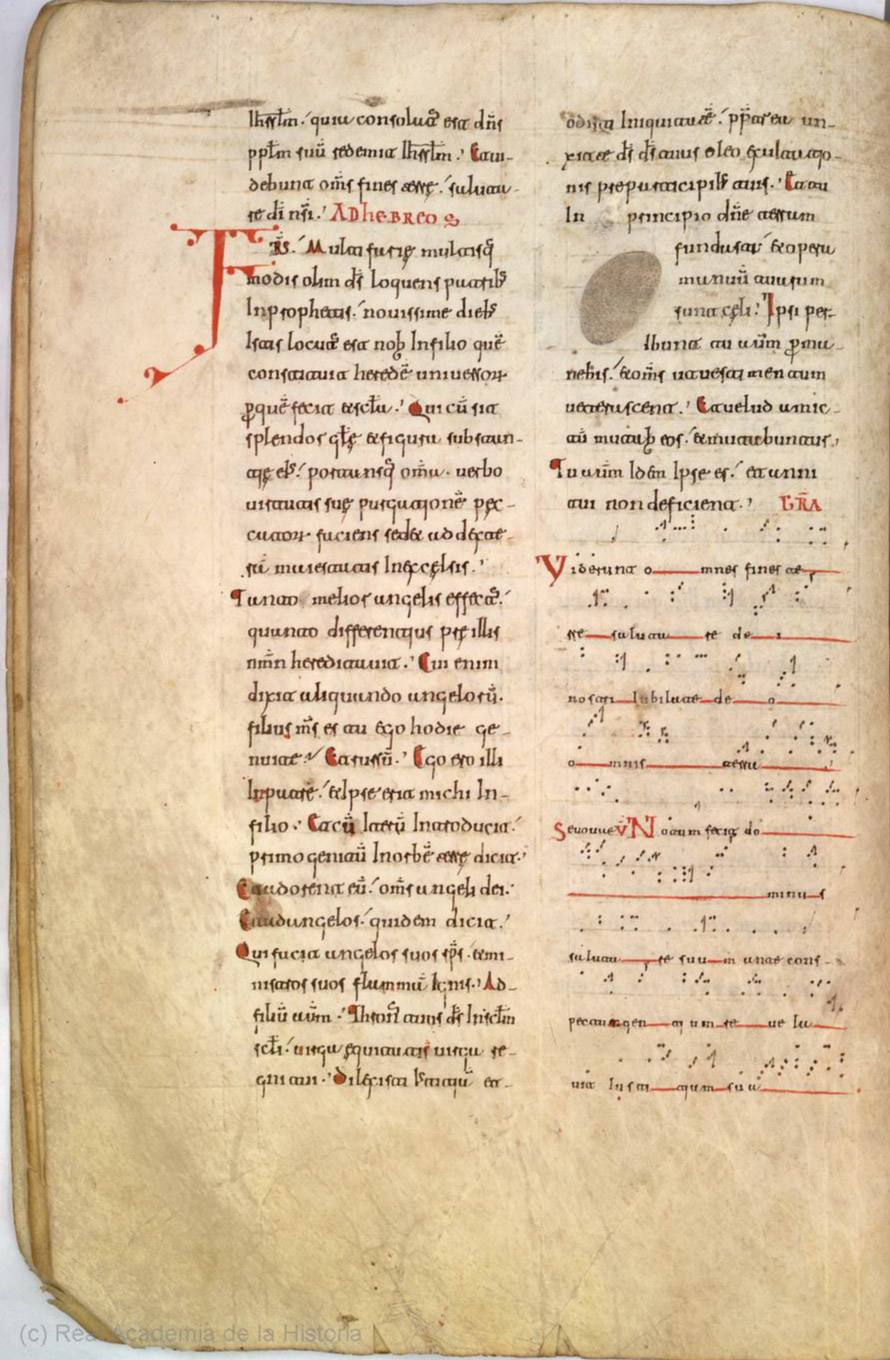 Ihrslm. quia consolat' est dns
pplm suu redemit Ihrslm. Et ui-
debunt oms fines terre. salutare
di nsi. AD HEBREOS
FRS. Multifarie multisq
modis olim ds loquens patrib
In prophetis. nouissime dieb
Istis locut' est nob In filio que
constituit herede uniuersor
p que fecit et scla. Qui cu sit
splendor gle et figura substan-
tie ei'. portansq omia. uerbo
uirtutis sue purgatione pec-
cator faciens sedet ad dexte-
ra maiestatis In excelsis.
Tanto melior angelis effect'.
quanto differentius pre illis
nmn hereditauit. Cui enim
dixit aliquando angeloru.
filius ms es tu Ego hodie ge-
nui te Et rursu. Ego ero illi
In patre. et Ipse erit michi In-
filio. Et cu Iteru Introducit.
primogenitu In orbe terre dicit.
Et adorent eu. oms angeli dei.
Et ad angelos. quidem dicit.
Qui facit angelos suos sps. et mi-
nistros suos flamma Ignis. Ad
filiu aum. Thron tuus ds In sclm
scli. uirga equitatis uirga re-
gni tui. Dilexisti Iustitia et
odisti Iniquitate. pp terea un-
xit te ds ds tuus oleo exultatio-
nis pre participib tuis. Et tu
In principio dne terram
fundasti et opera
manuu tuarum
sunt celi. Ipsi per-
ibunt tu aum pma-
nebis. et oms ut uestimentum
ueterascent. Et uelud amic-
tu mutab eos. et mutabuntur,
Tu aum Idem Ipse es. et anni
tui non deficient. GRA
Viderunt o mnes fines te
rre saluta re de i
nostri Iubilate de o
o mnis terra
Seuouae V NOtum fecit do
minus
saluta re suu m ante cons-
pectum gen ti um re ue la
uit Iusti tiam su a
(c) Real Academia de la Historia